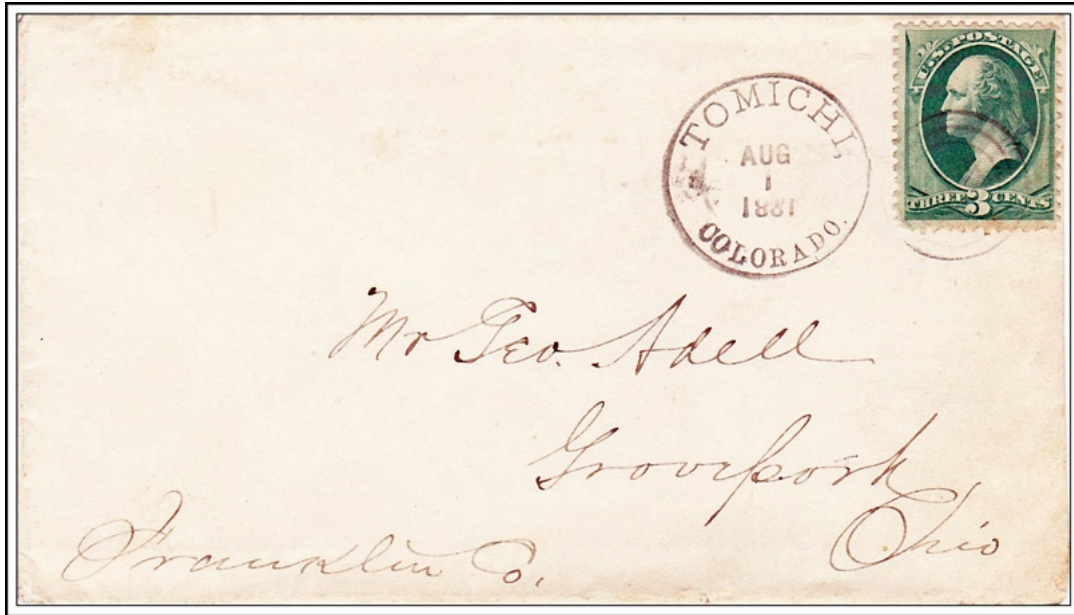 U.S. POSTAGE
THREE 3 CENTS
TOMICHI,
AUG
1
1881
COLORADO.
Mr Geo. Adell
Groveport
Ohio
Franklin Co.